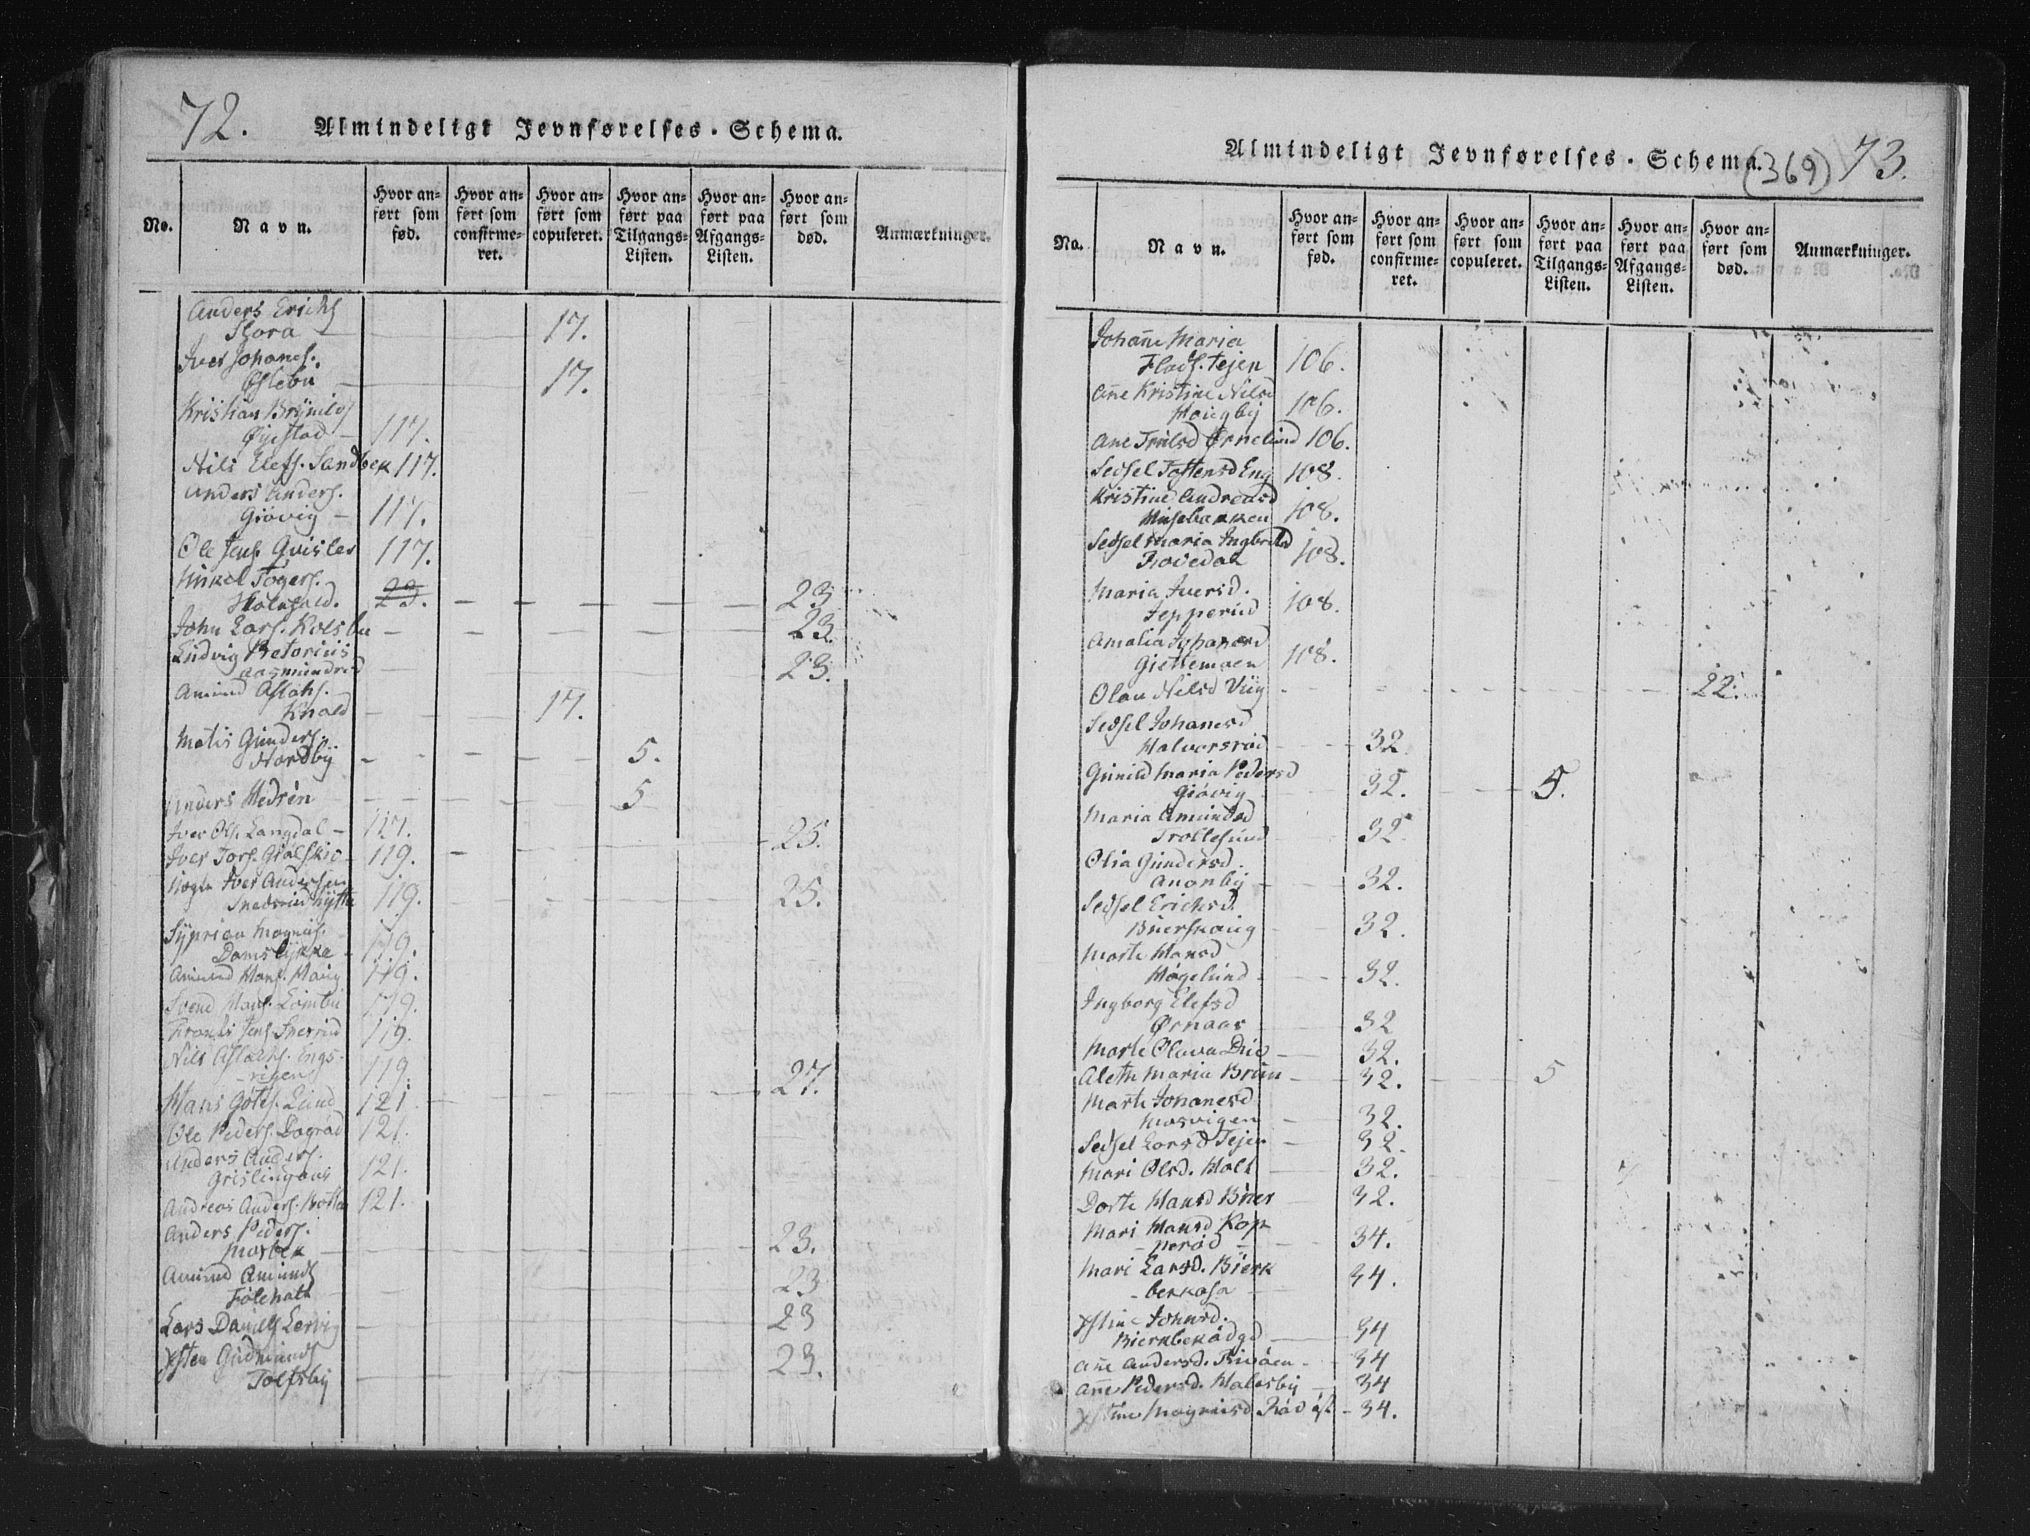 72.
Almindeligt Jevnførelses-Schema.
No.
Navn.
Hvor anført som fød.
Hvor anført som confirmeret.
Hvor anført som copuleret.
Hvor anført paa Tilgangs-Listen.
Hvor anført paa Afgangs-Listen.
Hvor anført som død.
Anmærkninger.
Anders Erichs
Flora — 17.
Iver Johanes.
— 17.
Kristian Brynilds
Øyestad — 117.
Nils Elefs. Sandbek 117.
Anders Anders.
Giövig — 117.
Ole Jens. Qvisler 117.
Mikel Tögers.
23. — — — — 23
John Lars. Kolsbu — — — — 23.
Ludvig Pretorius
Aasmundrød 23.
Amund Aslahs.
Knold — — 17.
Matis Gunders.
Nordby — — — — 5.
Anders Hedrén — — — — 5
Iver Ols. Langdal — 117. — 25.
Iver Tors. 119. —
Iver Andersen
119. — — — — 25.
Syprian Magnus.
Damslykke — 119.
Amund Hans. Haug 119.
Svend Hans. 119.
Frants Jens. 119.
Nils Aslachs. Engs-
vigen 119
Hans Lund 121. — — — — 27.
Ole Peders. 121.
Anders Anders.
Grislingaas 121.
Andreas Anders. 121.
Anders Peders.
Mosbek — 23.
Amund Amunds
Folehalt 23
Lars Daniels Lervig — 23
Ysten Gudmunds
Tolfsby — — 23.
Almindeligt Jevnførelses-Schema.
(369) 73.
No.
Navn.
Hvor anført som fød.
Hvor anført som confirmeret.
Hvor anført som copuleret.
Hvor anført paa Tilgangs-Listen.
Hvor anført paa Afgangs-Listen.
Hvor anført som død.
Anmærkninger.
Johañe Maria
Tejen 106.
Añe Kristine Nilsd
Haugby 106.
Ane Trulsd Ørnelund 106.
Sedsel Tostensd Eng 108.
Kristine Andreasd
Musebakken 108.
Sedsel Maria Ingbretsd
Rødedal 108.
Maria Iversd.
Jepperud 108.
Amalia Johanesd
Giettemoen 108.
Olau Nilsd Viig — — — — — 22.
Sedsel Johanesd
Halvorsrød — 32
Gunild Maria Pedersd
Giövig — 32. — — 5.
Maria Amundsd
Trollesund 32.
Olia Gundersd.
Anonby — 32.
Sedsel Erichsd.
Buerskoug — 32.
Marte Hansd
Høgelund — 32.
Ingborg Elefsd
Ørnaas — 32
Marte Olava — 32.
Alethe Maria Bruun — 32. — 5
Marte Johanesd
Mosvigen — 32.
Sedsel Larsd Tejen — 32.
Mari Olsd. Holt — 32.
Dorte Hansd Buer — 32.
Mari Hansd Kop-
perød — 34.
Mari Larsd. Bierk-
bekkasa — 34.
Ystine Johnsd.
— 34
Añe Andersd. — 34
Añe Pedersd. Halesby — 34
Ystine Magnusd. Rød — 34.